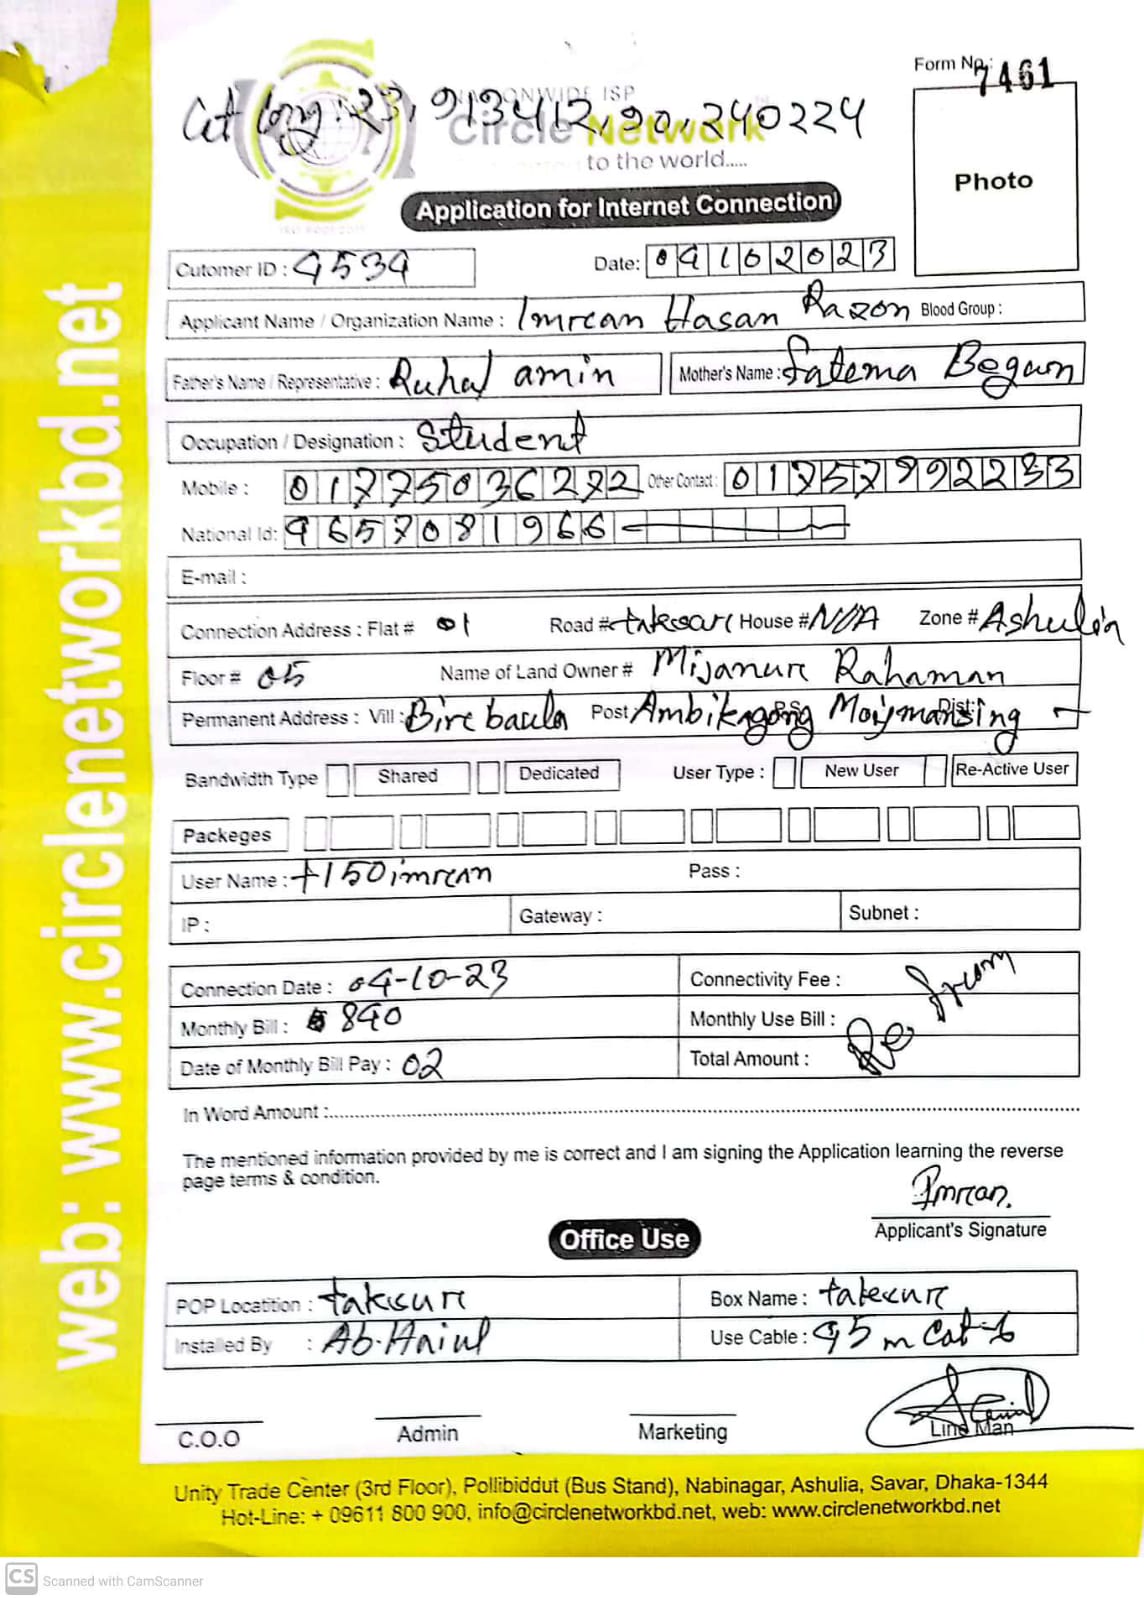 Form No.: 7461
NATIONWIDE ISP
Lat Long: 23,913412,90,240224
Circle Network
to the world.....
Photo
Application for Internet Connection
Cutomer ID : 4534 Date: 04102023
Applicant Name / Organization Name : Imrean Hasan Razon Blood Group :
Father's Name / Representative : Ruhal amin Mother's Name : Fatema Begum
Occupation / Designation : Student
Mobile : 01775036272 Other Contact : 01757992233
National Id: 9657081966
E-mail :
Connection Address : Flat # 01 Road # takssur House # N/A Zone # Ashulia
Floor # 05 Name of Land Owner # Mijanur Rahaman
Permanent Address : Vill : Post Ambikagong P.S. Moymansing Dist:
Bandwidth Type Shared Dedicated User Type : New User Re-Active User
Packeges
User Name : t150imran Pass :
IP : Gateway : Subnet :
Connection Date : 04-10-23 Connectivity Fee :
Monthly Bill : 840 Monthly Use Bill :
Date of Monthly Bill Pay : 02 Total Amount :
In Word Amount :
The mentioned information provided by me is correct and I am signing the Application learning the reverse
page terms & condition.
Imran.
Applicant's Signature
Office Use
POP Locatition : takssur Box Name : takssur
Installed By : Use Cable : 95 m Cat-6
C.O.O Admin Marketing Line Man
Unity Trade Center (3rd Floor), Pollibiddut (Bus Stand), Nabinagar, Ashulia, Savar, Dhaka-1344
Hot-Line: + 09611 800 900, info@circlenetworkbd.net, web: www.circlenetworkbd.net
web: www.circlenetworkbd.net
CS Scanned with CamScanner